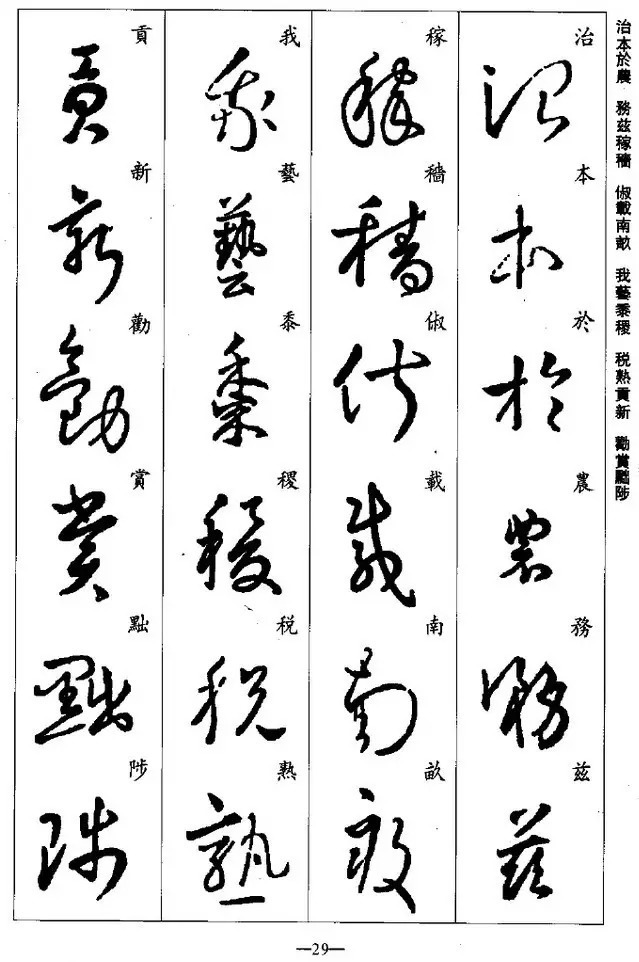 治本於農　務茲稼穡　俶載南畝　我藝黍稷　稅熟貢新　勸賞黜陟
治本於農務茲
稼穡俶載南畝
我藝黍稷稅熟
貢新勸賞黜陟
—29—